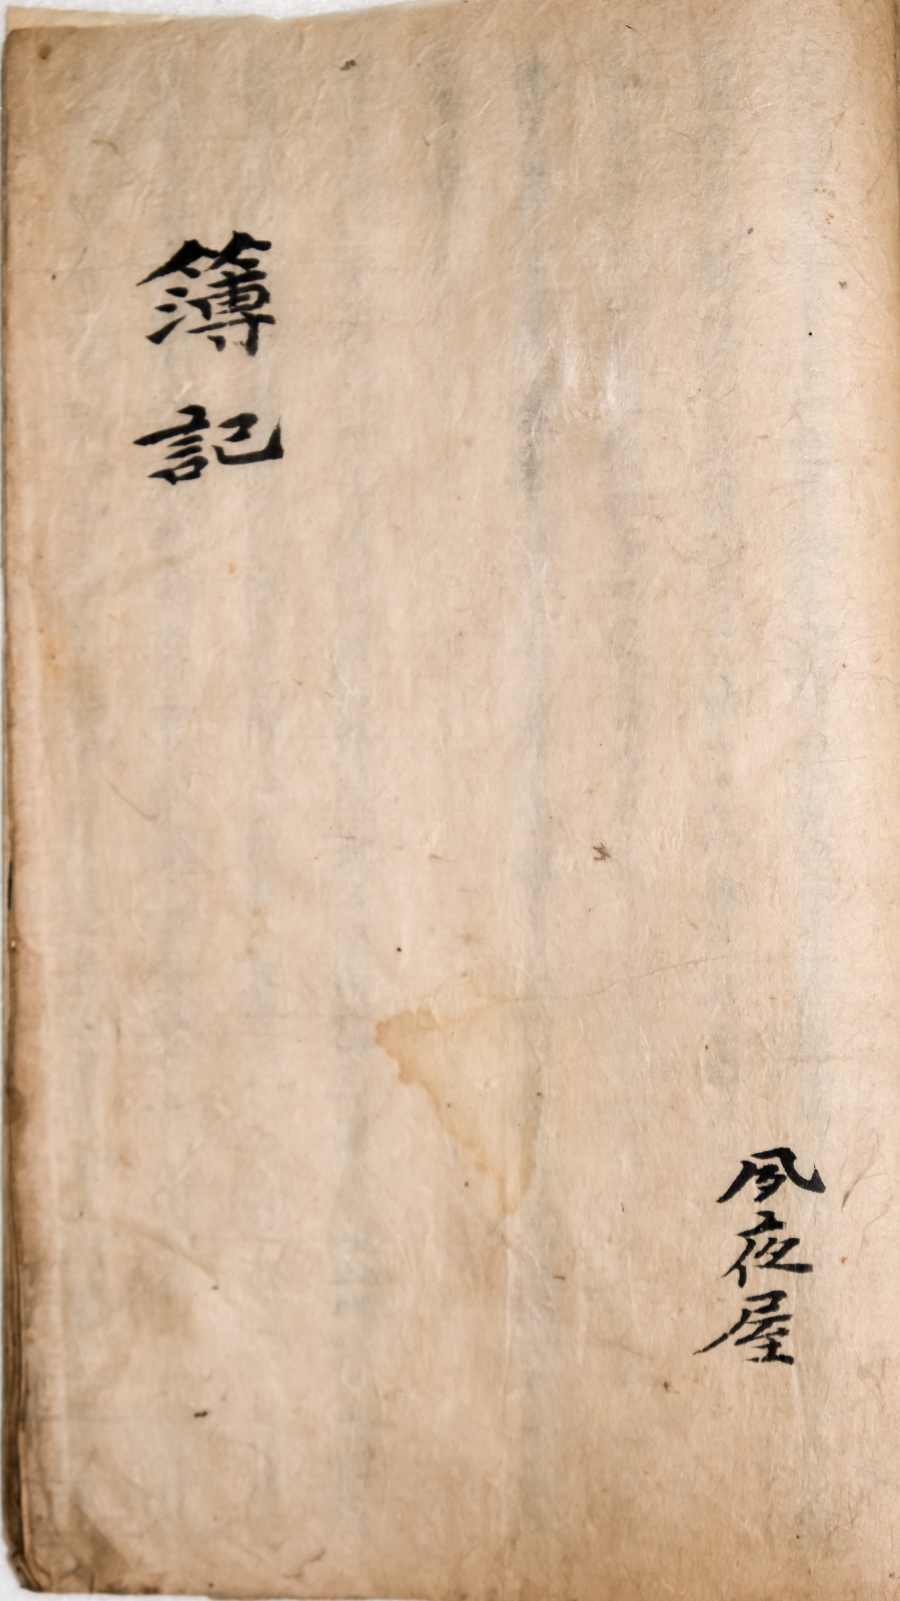 簿記
夙夜屋